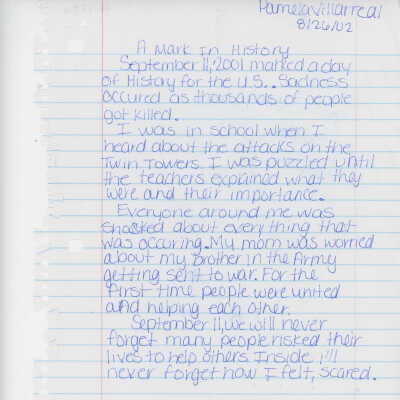 Pamela Villarreal
8/26/02
A Mark In History
September 11, 2001 marked a day
of History for the U.S.. Sadness
occured as thousands of people
got killed.
I was in school when I
heard about the attacks on the
Twin Towers. I was puzzled until
the teachers explained what they
were and their importance.
Everyone around me was
shocked about everything that
was occuring. My mom was worried
about my brother in the Army
getting sent to war. For the
first time people were united
and helping each other.
September 11, we will never
forget many people risked their
lives to help others. Inside i'll
never forget how I felt, scared.